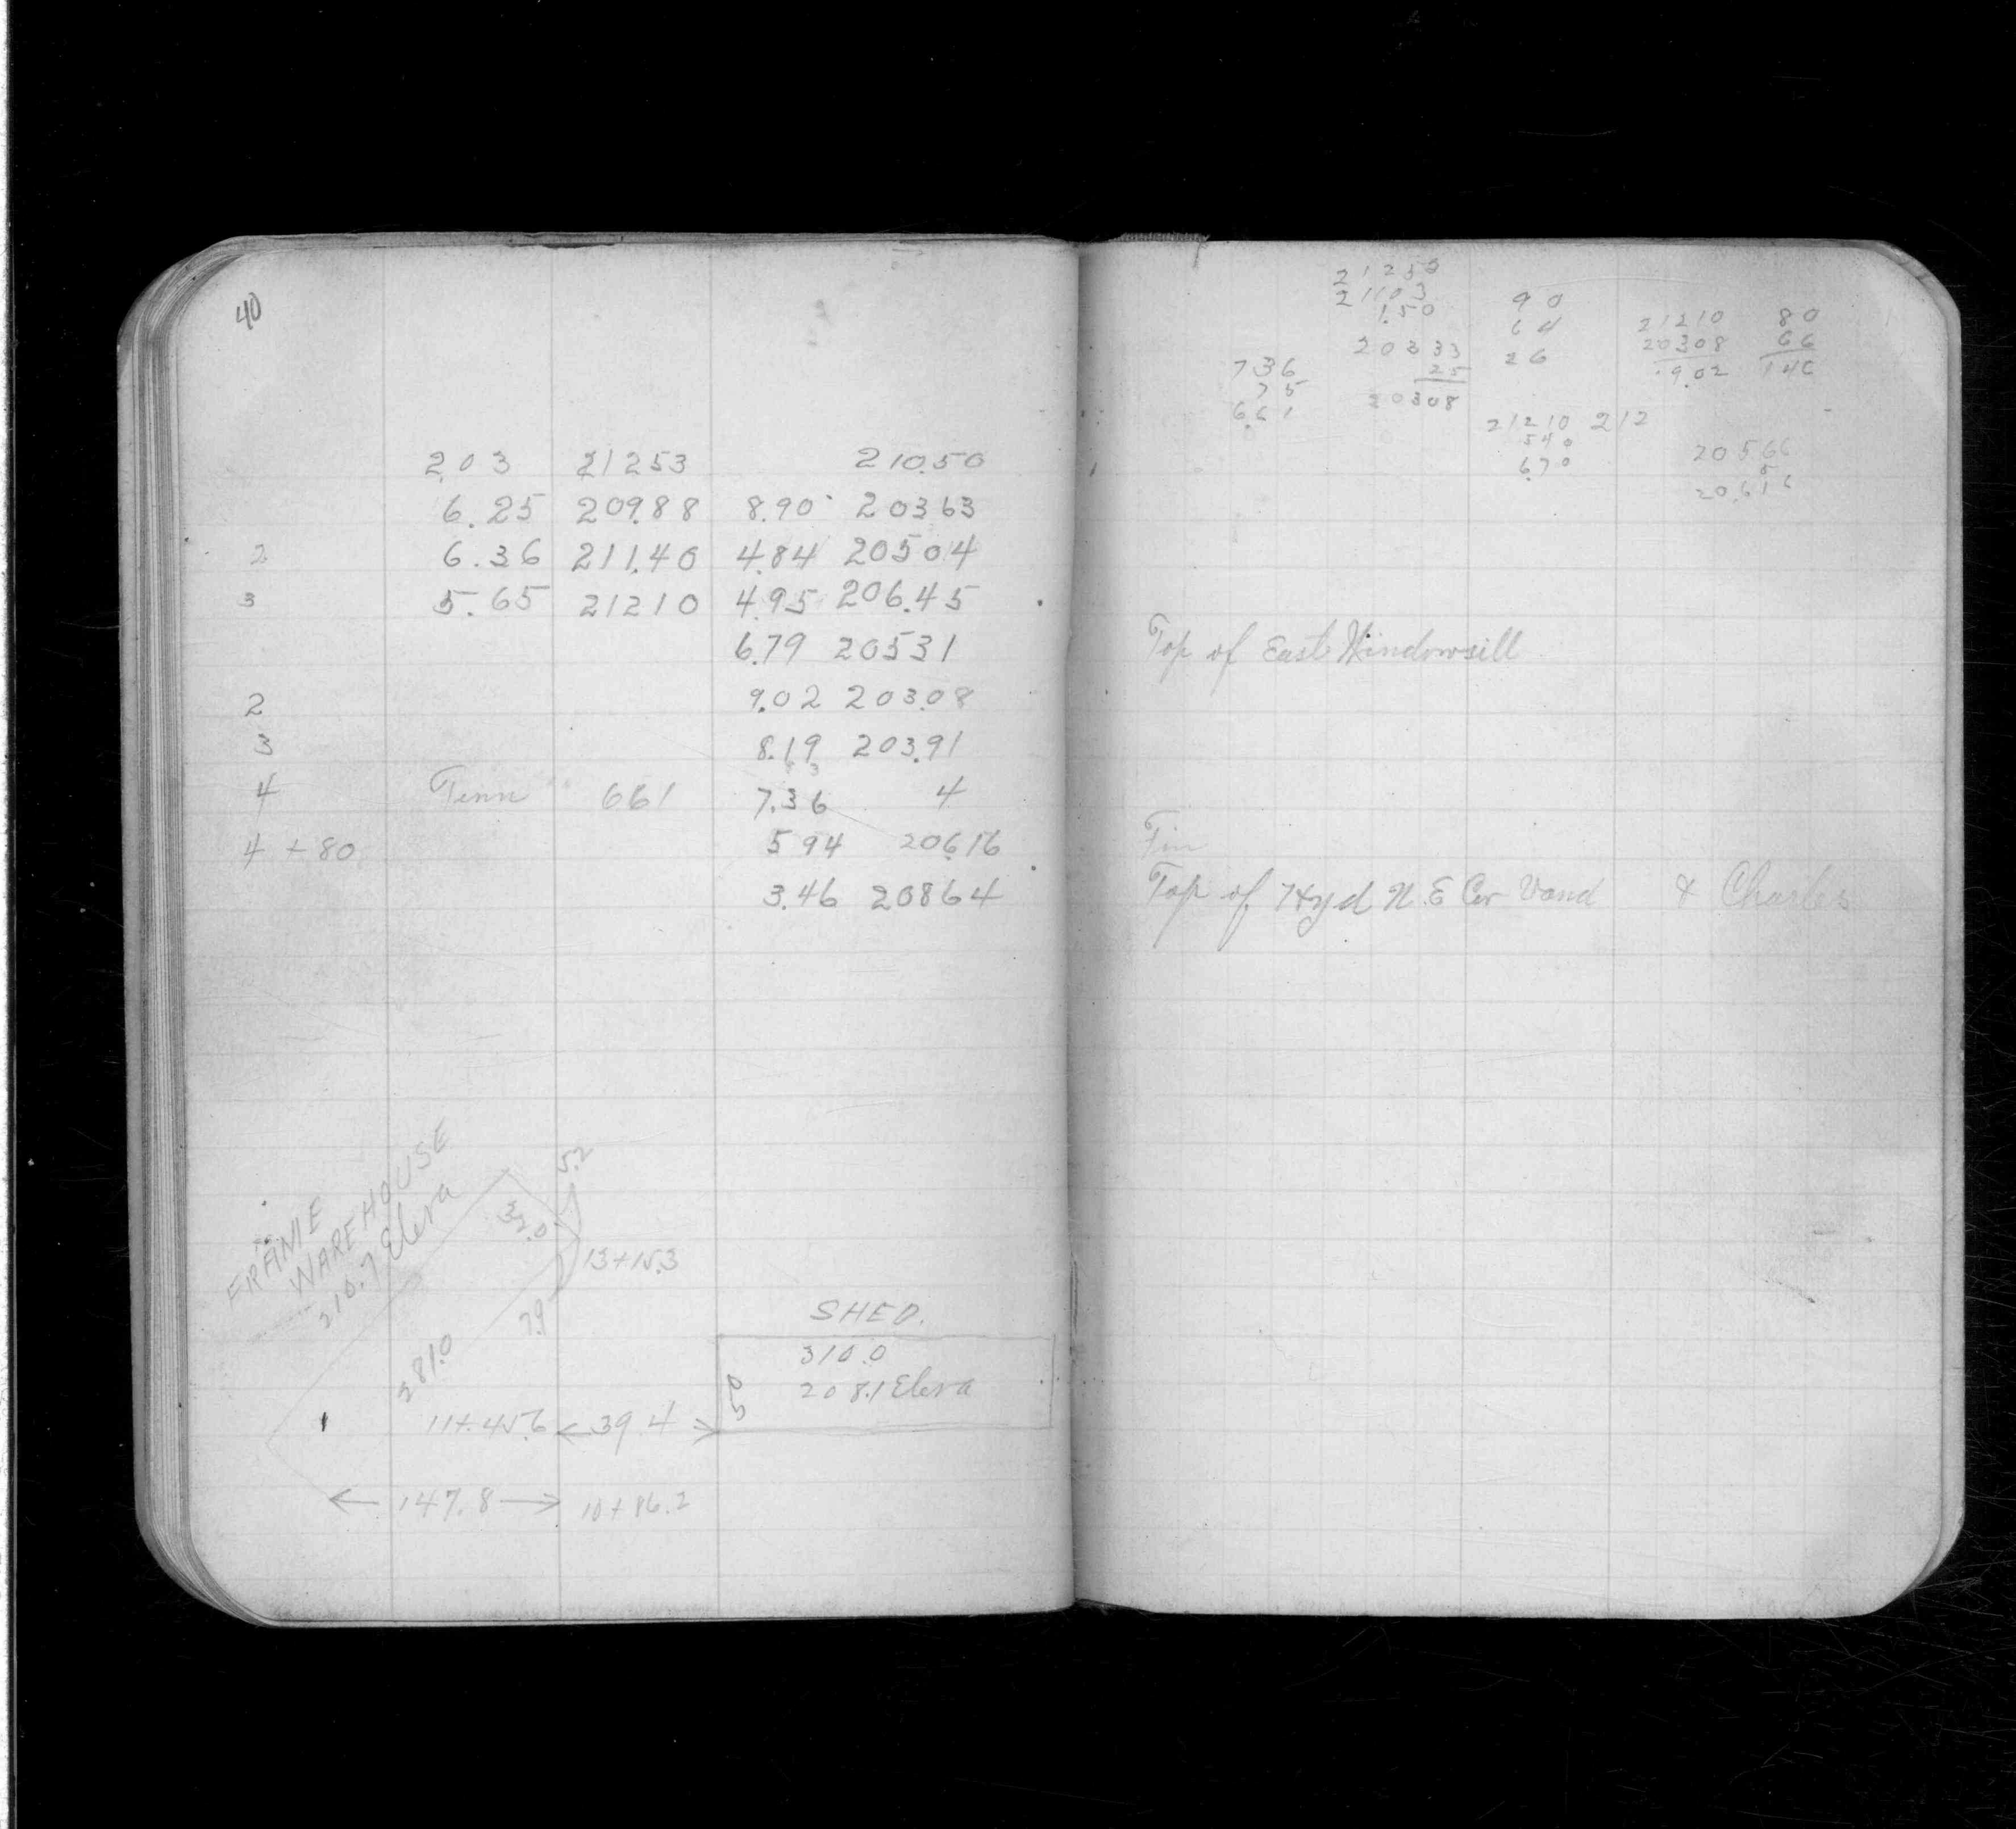 40
2.03 21253 210.50
6.25 209.88 8.90 20363
2 6.36 211.40 4.84 20504
3 5.65 21210 4.95 206.45
6.79 20531
2 9.02 203.08
3 8.19 203.91
4 Tenn 661 7.36 4
4 + 80 5 94 206.16
3.46 20864
FRAME
WAREHOUSE
210.7 Eleva
5.2
32.0
13+15.3
7.9
281.0
SHED.
310.0
208.1 Eleva
50
11+45.6 39.4
147.8 10+86.2
21253
21103
1.50
90
64
26
21210
20308
9.02
80
66
146
736
75
6.61
20333
25
20308
21210 212
540
6.70
20566
5
20.616
Top of East Windowsill
Top of Hyd N.E Cor Vand & Charles